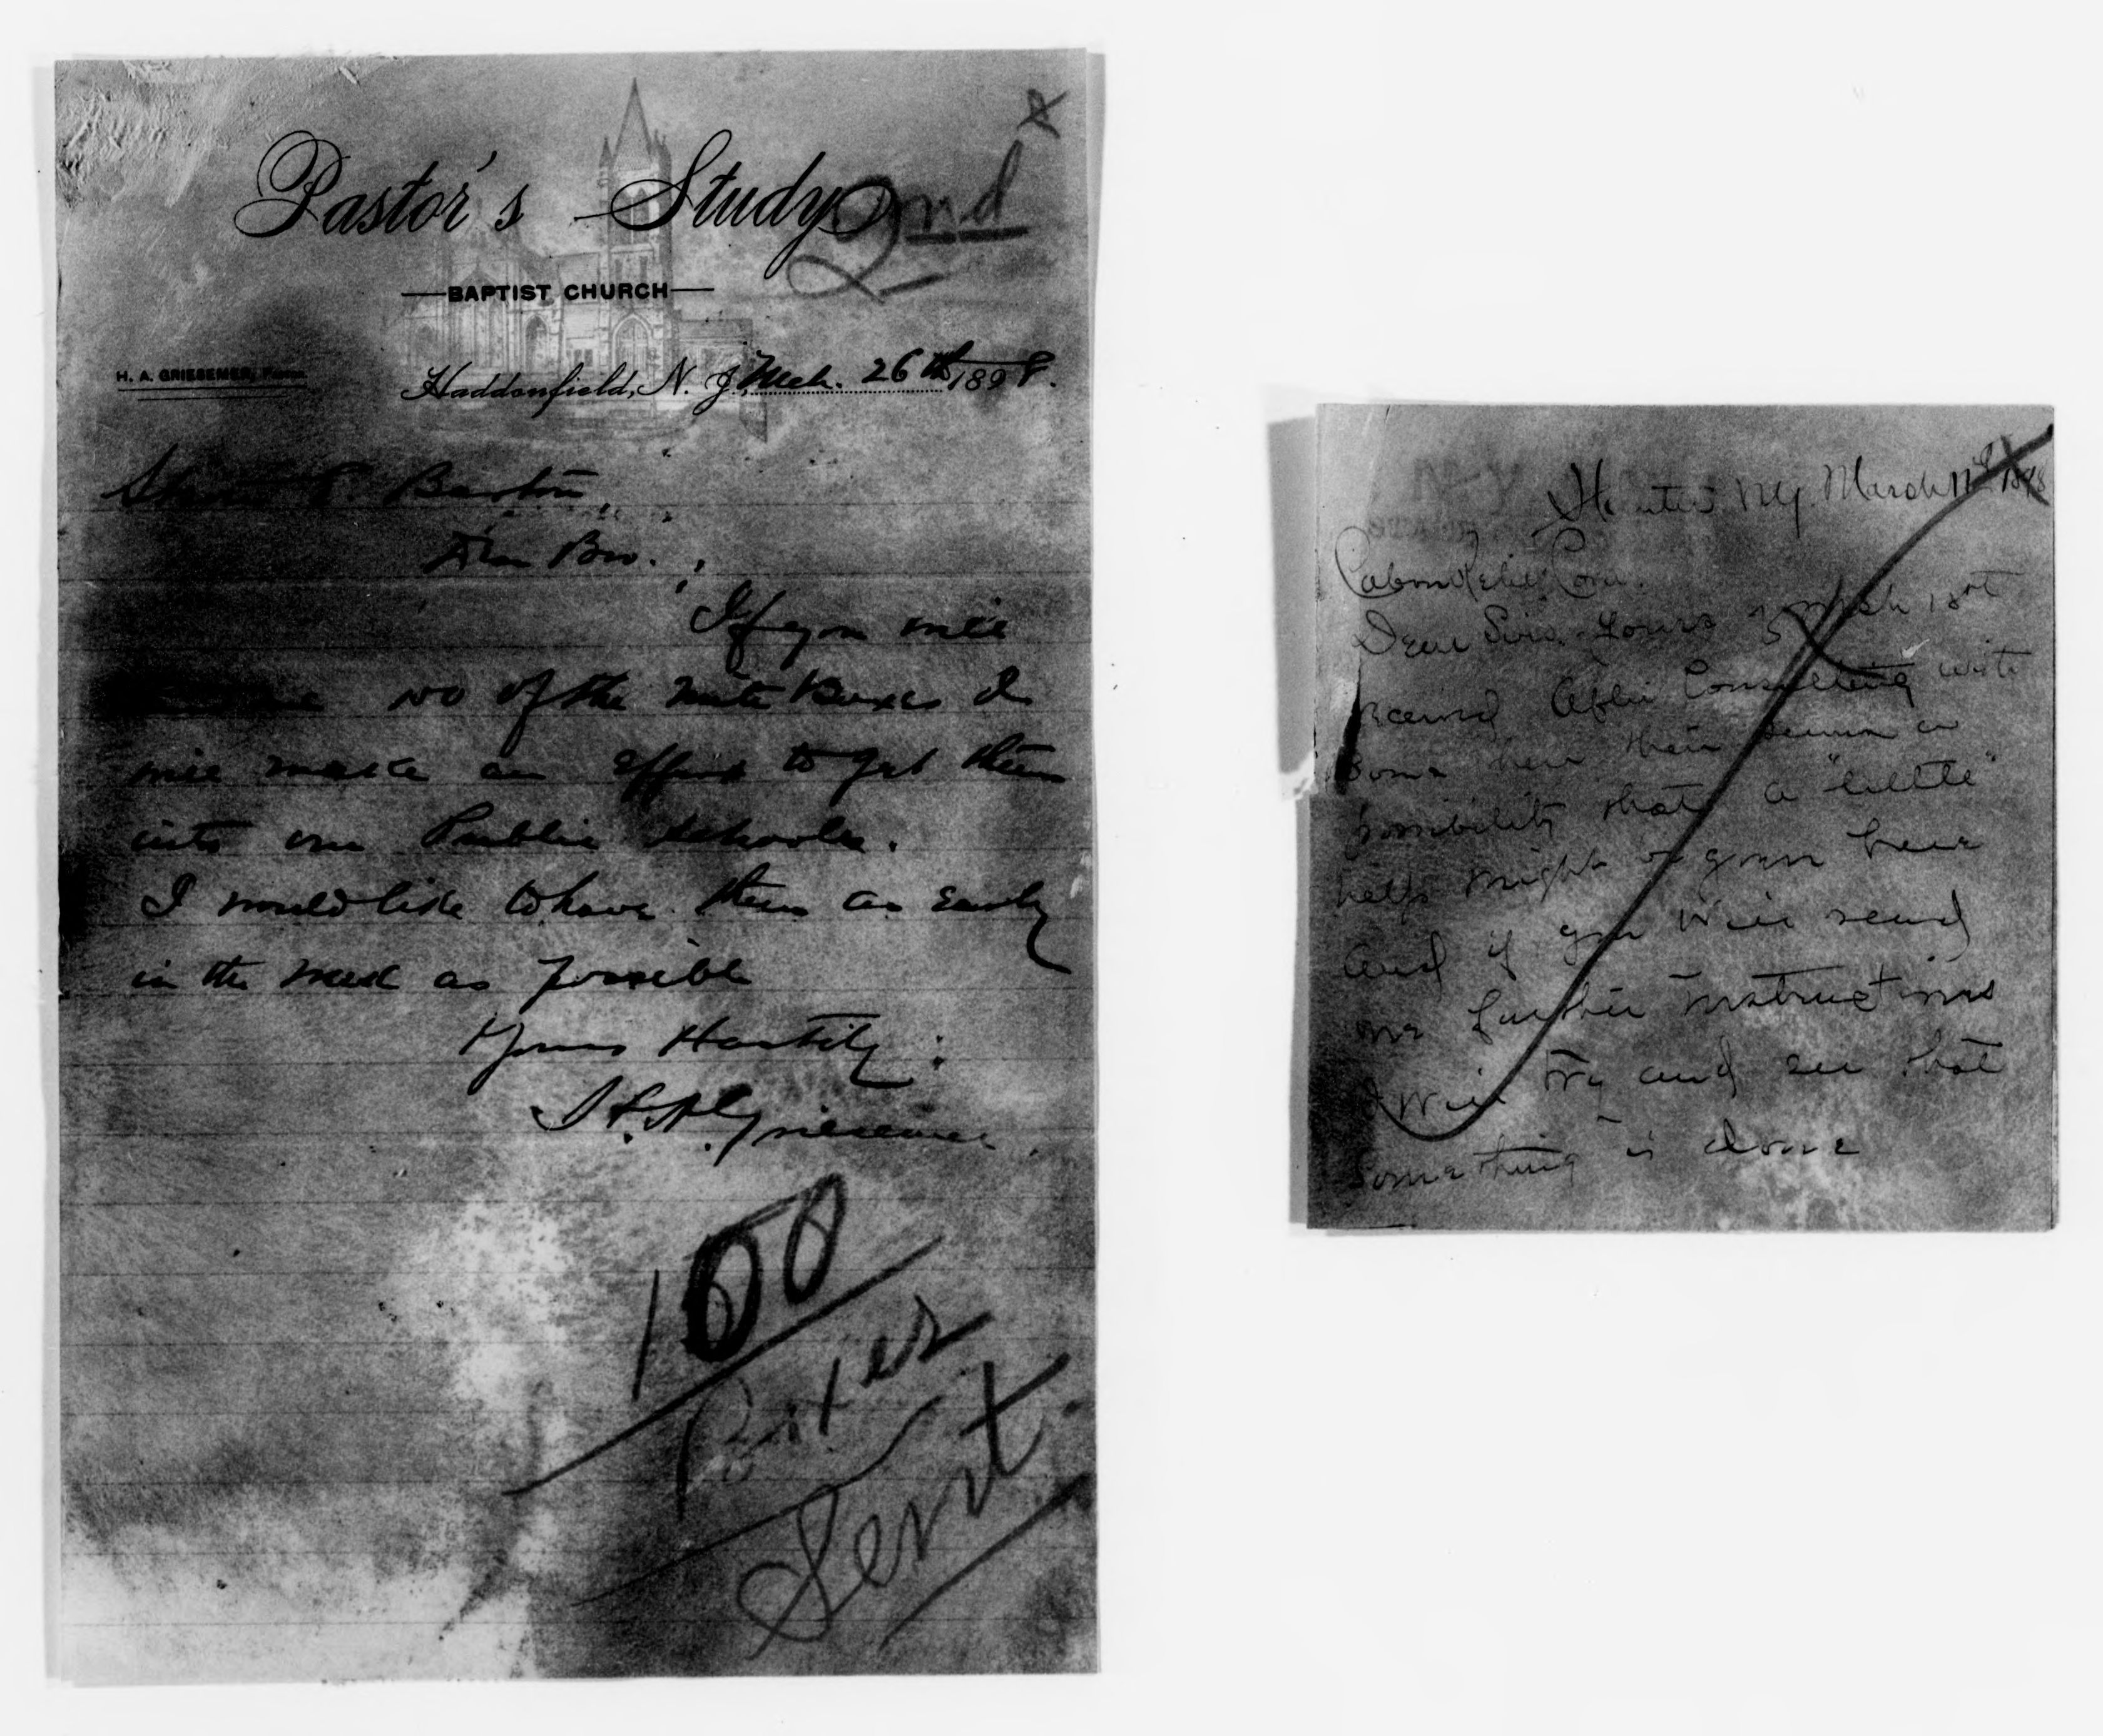 x
2nd
Pastor's Study
BAPTIST CHURCH
H. A. GRIESEMER, Pastor.
Haddonfield, N. J., Mch. 26th 1898.
E. Barton,
Dear Bro.,
If you will
100 of the mite Boxes I
will make an effort to get them
into our Public Schools.
I would like to have them as early
in the week as possible
Yours Hastily:
H. A. Griesemer.
100
Boxes
Sent
N-Y
Hunter NY. March 17th 1898
Cuban Relief Com.
Dear Sirs. Yours of Mch 13th
Received After Consulting with
Some here their seems a
possibility that a "little"
help might be given here
and if you will send
me further instructions
I will try and see that
something is done